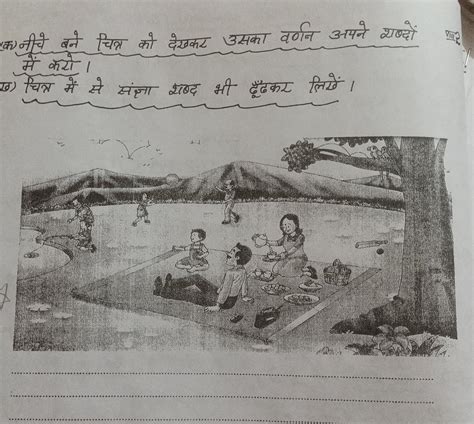 (क) नीचे बने चित्र को देखकर उसका वर्णन अपने शब्दों
में करो ।
ख) चित्र में से संज्ञा शब्द भी ढूँढकर लिखें ।